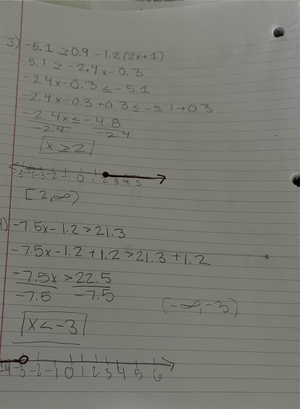 3) -5.1 ≥ 0.9 - 1.2(2x+1)
5.1 ≥ -2.4x - 0.3
-2.4x - 0.3 ≤ -5.1
-2.4x - 0.3 + 0.3 ≤ -5.1 + 0.3
-2.4x ≤ -4.8
-2.4 -2.4
x ≥ 2
-5 -4 -3 -2 -1 0 1 2 3 4 5
[2, ∞)
4) -7.5x - 1.2 > 21.3
-7.5x - 1.2 + 1.2 > 21.3 + 1.2
-7.5x > 22.5
-7.5 -7.5
(-∞, -3)
x < -3
-4 -3 -2 -1 0 1 2 3 4 5 6